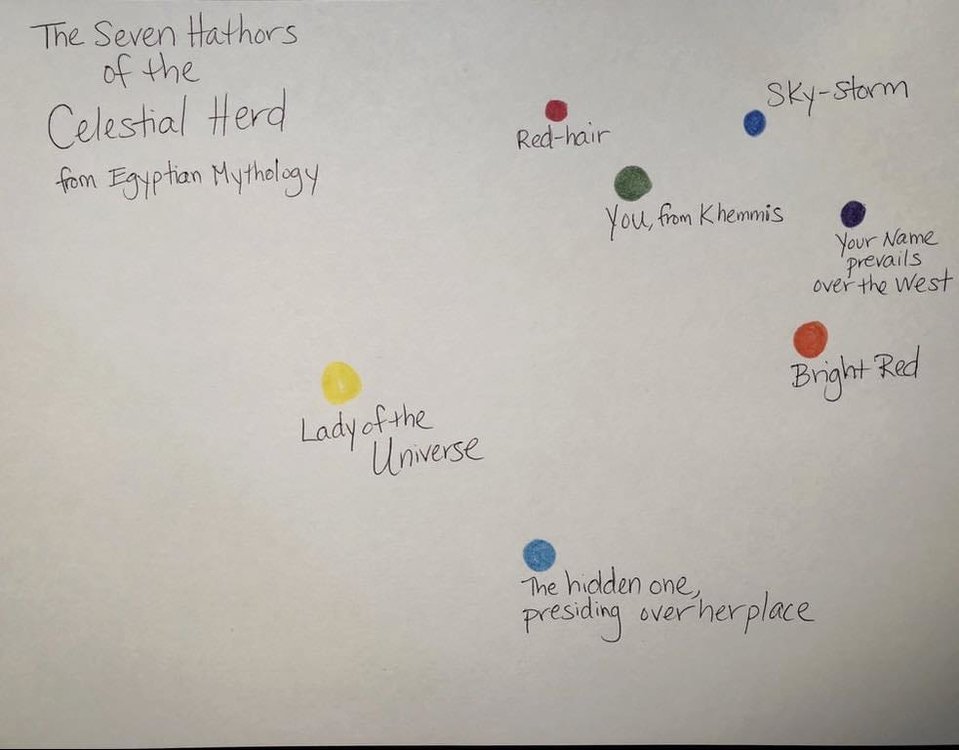 The Seven Hathors
of the
Celestial Herd
from Egyptian Mythology
Sky-Storm
Red-hair
You, from Khemmis
Your Name
prevails
over the West
Bright Red
Lady of the
Universe
The hidden one,
presiding over her place